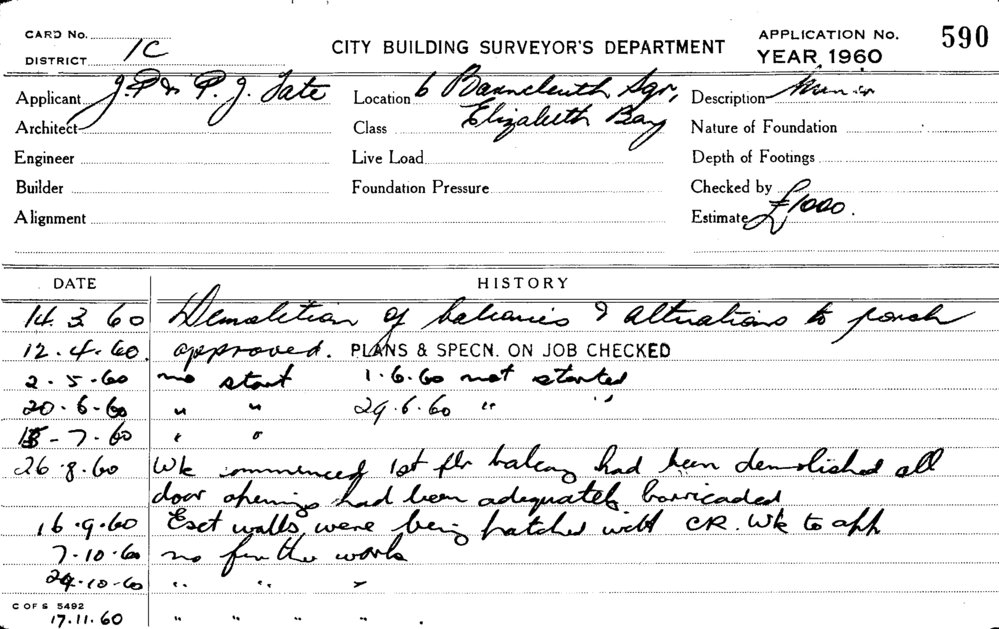 CARD No.
DISTRICT 1C
CITY BUILDING SURVEYOR'S DEPARTMENT
APPLICATION No. 590
YEAR 1960
Applicant J.P & P. J. Tate
Location 6 Barncleuth Sqr,
Description Minor
Architect
Class Elizabeth Bay
Nature of Foundation
Engineer
Live Load
Depth of Footings
Builder
Foundation Pressure
Checked by
Alignment
Estimate £1000.
DATE HISTORY
14. 3. 60 Demolition of balconies & alterations to porch
12. 4. 60. approved. PLANS & SPECN. ON JOB CHECKED
2. 5. 60 no start 1. 6. 60 not started
20. 6. 60 " " 29. 6. 60 " "
15 - 7. 60 " "
26. 8. 60 Wk commenced 1st flr balcony had been demolished all
door openings had been adequately barricaded
16. 9. 60 Ext walls were being patched with CR. Wk to app
7. 10. 60 no further work
24. 10. 60 " " "
C OF S 5492
17. 11. 60 " " " " .